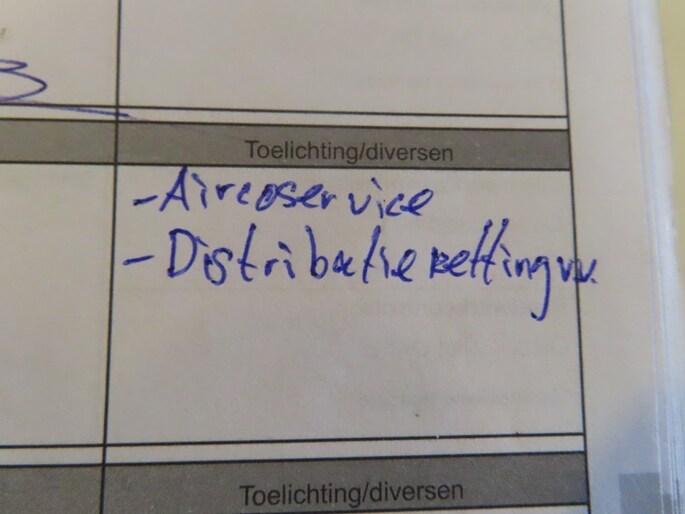 Toelichting/diversen
- Aircoservice
- Distributie ketting vv.
Toelichting/diversen